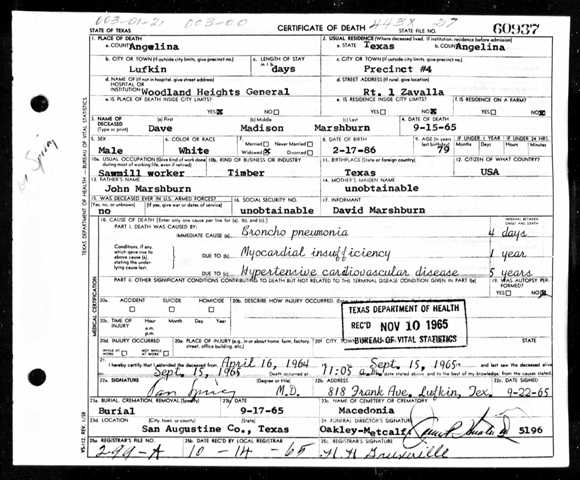 003-01-2 003-00 443X 27
STATE OF TEXAS CERTIFICATE OF DEATH STATE FILE NO. 60937
1. PLACE OF DEATH 2. USUAL RESIDENCE (Where deceased lived. If institution: residence before admission)
a. COUNTY Angelina a. STATE Texas b. COUNTY Angelina
b. CITY OR TOWN (If outside city limits, give precinct no.) c. LENGTH OF STAY c. CITY OR TOWN (If outside city limits, give precinct no.)
Lufkin days Precinct #4
d. NAME OF (If not in hospital, give street address) d. STREET ADDRESS (If rural, give location)
HOSPITAL OR INSTITUTION Woodland Heights General Rt. 1 Zavalla
e. IS PLACE OF DEATH INSIDE CITY LIMITS? e. IS RESIDENCE INSIDE CITY LIMITS? f. IS RESIDENCE ON A FARM?
YES NO YES NO YES NO
3. NAME OF DECEASED (Type or print) (a) First (b) Middle (c) Last 4. DATE OF DEATH
Dave Madison Marshburn 9-15-65
5. SEX 6. COLOR OR RACE 7. Married Never Married 8. DATE OF BIRTH 9. AGE (In years IF UNDER 1 YEAR IF UNDER 24 HRS.
Male White Widowed Divorced 2-17-86 79
10a. USUAL OCCUPATION (Give kind of work done 10b. KIND OF BUSINESS OR INDUSTRY 11. BIRTHPLACE (State or foreign country) 12. CITIZEN OF WHAT COUNTRY?
Sawmill worker Timber Texas USA
13. FATHER'S NAME 14. MOTHER'S MAIDEN NAME
John Marshburn unobtainable
15. WAS DECEASED EVER IN U.S. ARMED FORCES? 16. SOCIAL SECURITY NO. 17. INFORMANT
(Yes, no, or unknown) (If yes, give war or dates of service)
no unobtainable David Marshburn
18. CAUSE OF DEATH [Enter only one cause per line for (a), (b), and (c).] INTERVAL BETWEEN ONSET AND DEATH
PART I. DEATH WAS CAUSED BY:
IMMEDIATE CAUSE (a) Broncho pneumonia 4 days
Conditions, if any, which gave rise to above cause (a), stating the underlying cause last.
DUE TO (b) Myocardial insufficiency 1 year
DUE TO (c) Hypertensive cardiovascular disease 5 years
PART II. OTHER SIGNIFICANT CONDITIONS CONTRIBUTING TO DEATH BUT NOT RELATED TO THE TERMINAL DISEASE CONDITION GIVEN IN PART I(a) 19. WAS AUTOPSY PERFORMED?
YES NO
20a. ACCIDENT SUICIDE HOMICIDE 20b. DESCRIBE HOW INJURY OCCURRED.
TEXAS DEPARTMENT OF HEALTH
REC'D NOV 10 1965
BUREAU OF VITAL STATISTICS
20c. TIME OF INJURY Hour Month Day Year
a.m.
p.m.
20d. INJURY OCCURRED 20e. PLACE OF INJURY (e.g., in or about home, farm, factory, street, office building, etc.) 20f. CITY, TOWN STATE
WHILE AT WORK NOT WHILE AT WORK
21. I hereby certify that I attended the deceased from April 16, 1964 Sept. 15, 1965 and last saw the deceased alive
Sept. 15, 1965 Death occurred at 11:05 a.m. date stated above, and to the best of my knowledge, from the causes stated.
22a. SIGNATURE (Degree or title) 22b. ADDRESS 22c. DATE SIGNED
M.D. 818 Frank Ave, Lufkin, Tex. 9-22-65
23a. BURIAL CREMATION, REMOVAL (Specify) 23b. DATE 23c. NAME OF CEMETERY OR CREMATORY
Burial 9-17-65 Macedonia
23d. LOCATION (City, town, or county) (State) 24. FUNERAL DIRECTOR'S SIGNATURE
San Augustine Co., Texas Oakley-Metcalf 5196
25a. REGISTRAR'S FILE NO. 25b. DATE REC'D BY LOCAL REGISTRAR 25c. REGISTRAR'S SIGNATURE
299-A 10-14-65
TEXAS DEPARTMENT OF HEALTH - BUREAU OF VITAL STATISTICS
MEDICAL CERTIFICATION